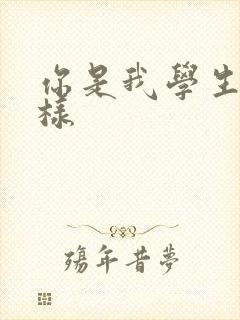 你是我學生
樣
殤年昔夢